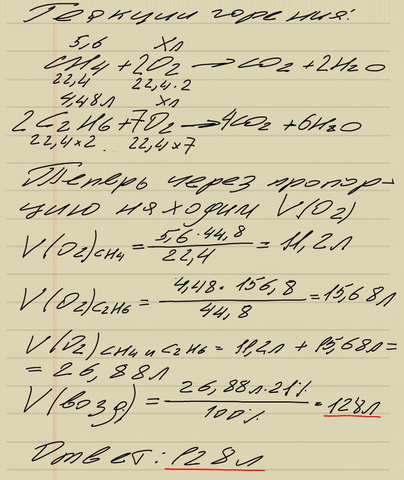 Реакции горения:
5,6 хл
CH4 + 2O2 → CO2 + 2H2O
22,4 22,4·2
4,48л хл
2C2H6 + 7O2 → 4CO2 + 6H2O
22,4×2 22,4×7
Теперь через пропор-
цию находим V(O2)
V(O2)CH4 = 5,6·44,8 / 22,4 = 11,2л
V(O2)C2H6 = 4,48·156,8 / 44,8 = 15,68л
V(O2) CH4 и C2H6 = 11,2л + 15,68л =
= 26,88л
V(возд) = 26,88л·21% / 100% = 128л
Ответ: 128л